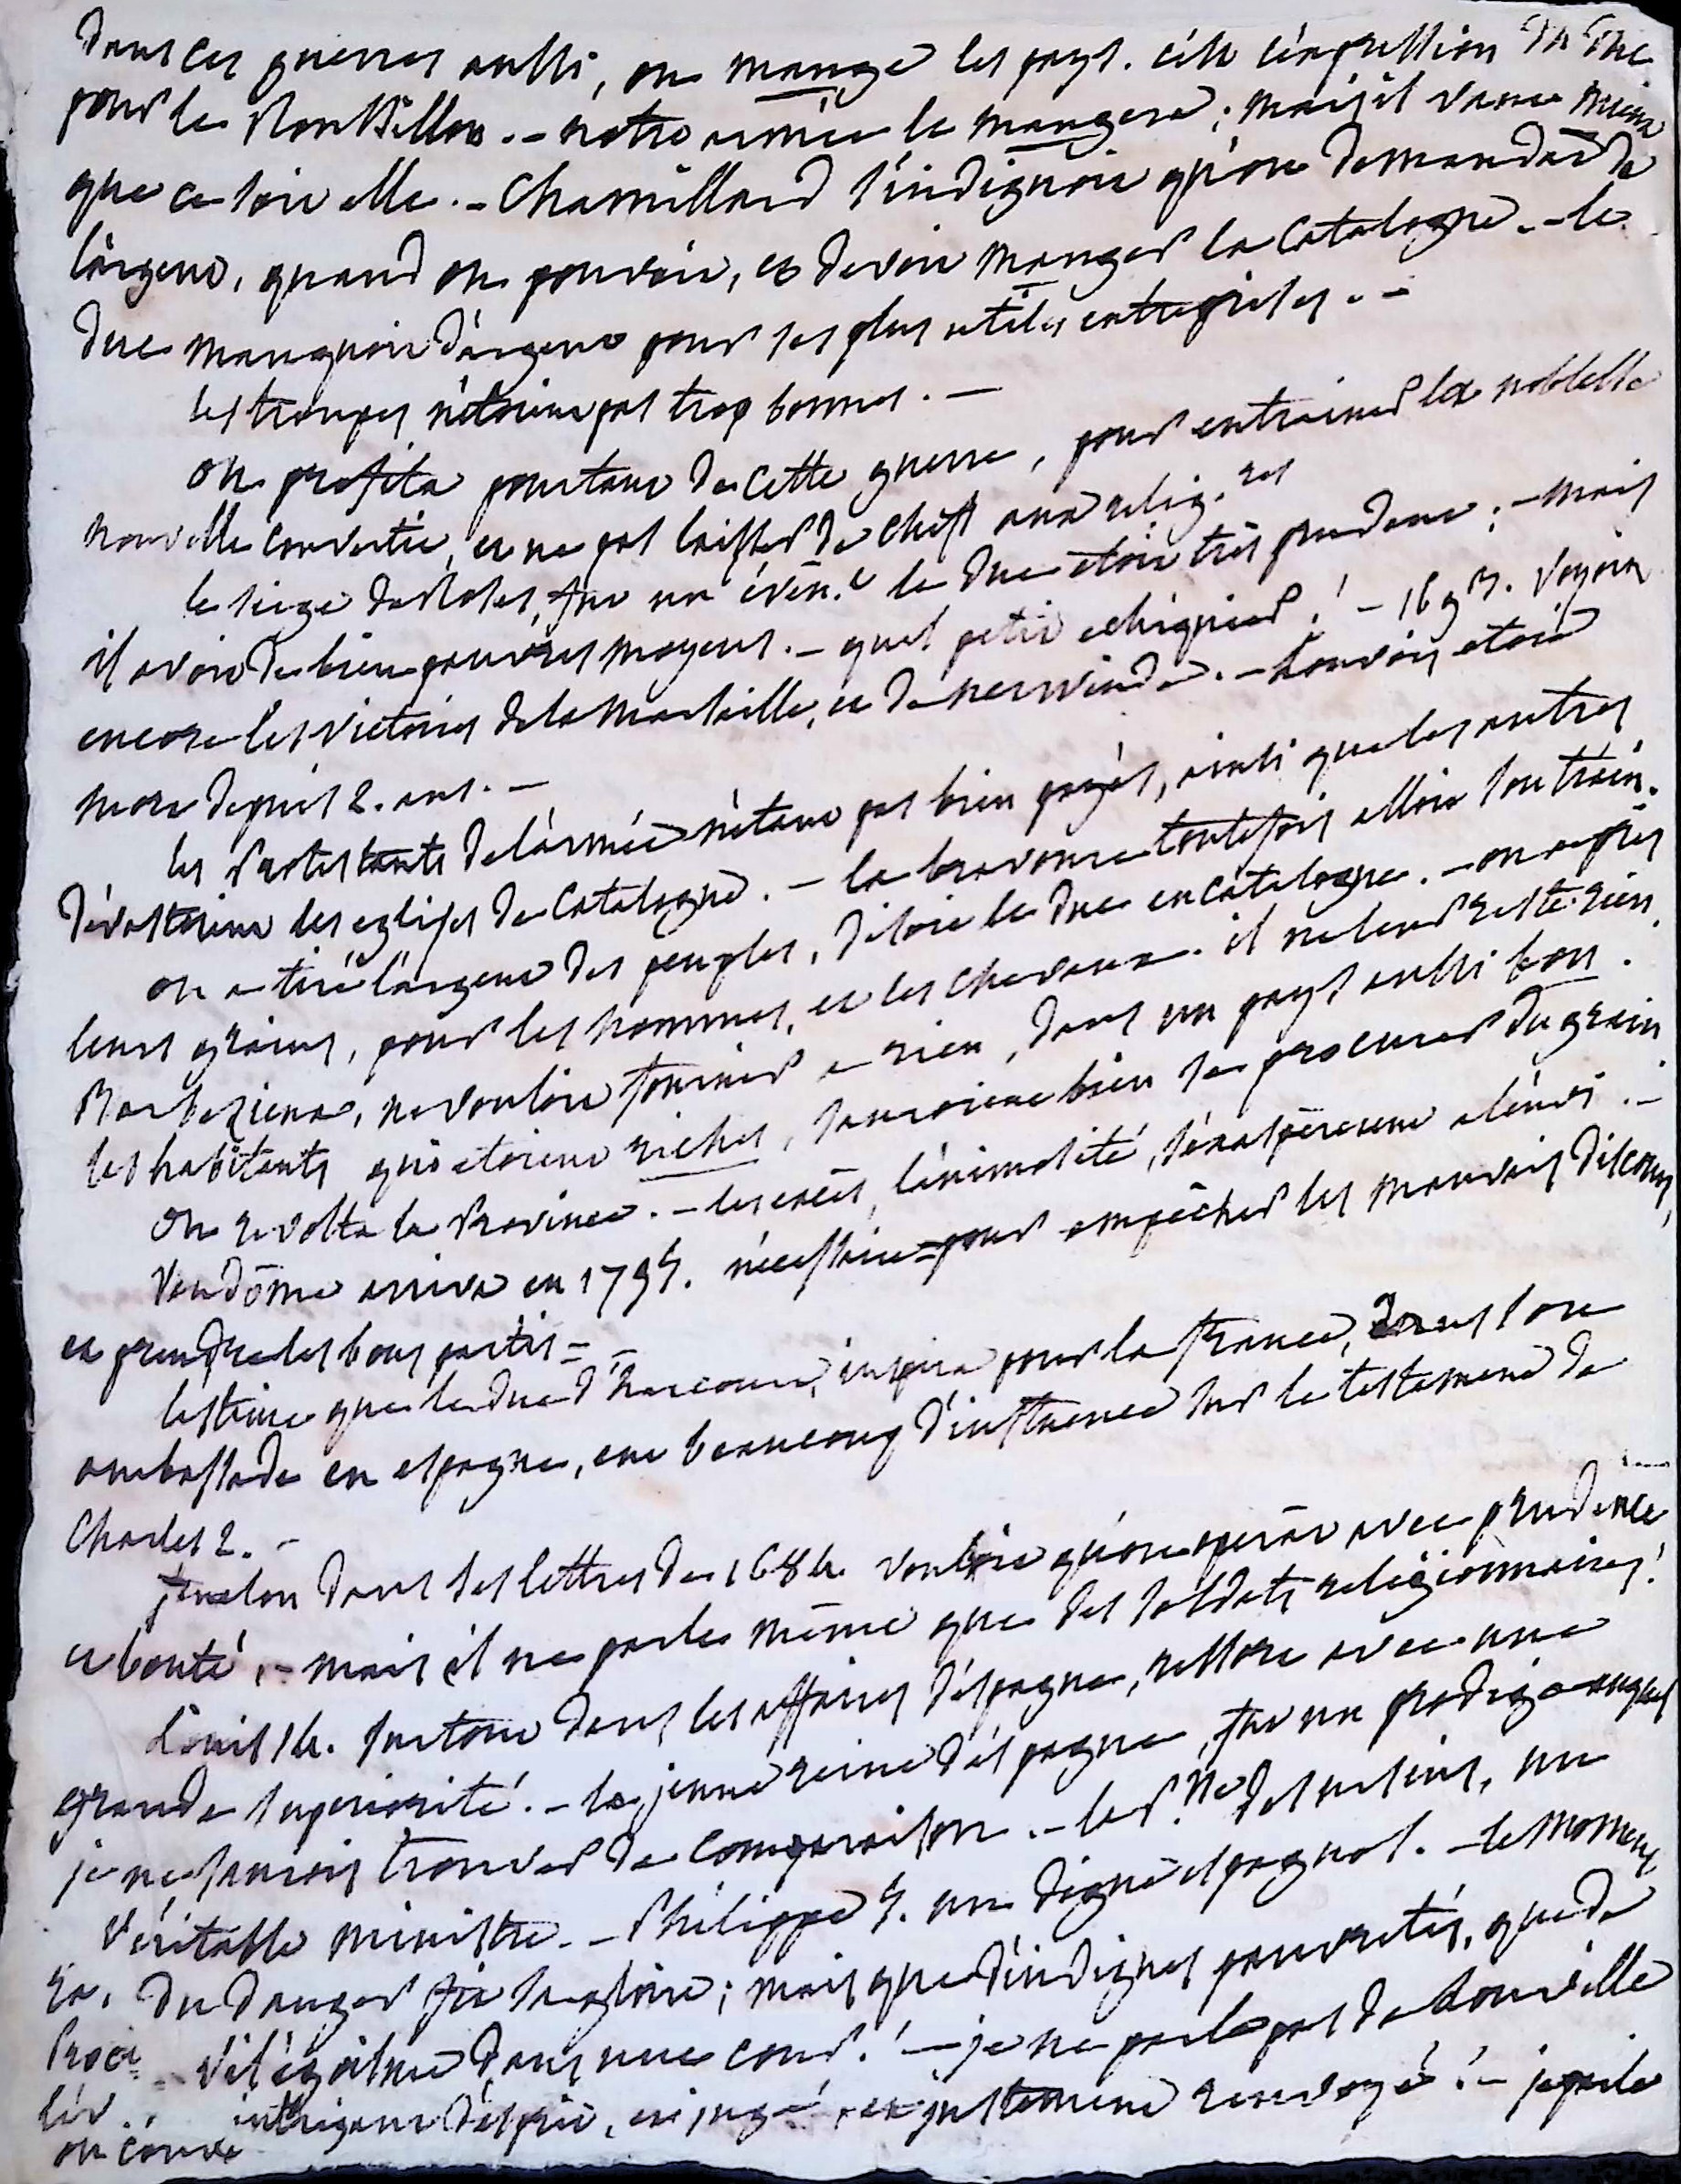 dans ces guerres aussi, on mange les pays. c'est l'expression du duc
pour le Roussillon. - notre armée le mangera; mais il vaut mieux
que ce soit elle. - Chamillard s'indignoit qu'on demandât de
l'argent, quand on pouvoit, et devoit manger la Catalogne. - le
duc manquoit d'argent pour ses plus utiles entreprises. -
les troupes n'étoient pas trop bonnes. -
on profita pourtant de cette guerre, pour entrainer la noblesse
nouvelle convertie, et ne pas laisser de chefs aux relig.res
le siege de Roses, fut un évén.t le duc etoit très prudent; - mais
il avoit de bien pauvres moyens. - quel petit echiquier! - 1693. voyoit
encore les victoires de la Marsaille, et de nerwinde. - Louvois etoit
mort depuis 2. ans. -
les Protestants de l'armée n'étant pas bien payés, ainsi que les autres
dévastoient les eglises de Catalogne. - la bravoure toutefois alloit son train.
on a tiré l'argent des peuples, disoit le duc en Catalogne. - on a pris
leurs grains, pour les hommes, et les chevaux. il ne leur reste rien.
Barbezieux, ne vouloit fournir a rien, dans un pays aussi bon.
les habitants qui etoient riches, sauroient bien se procurer du grain.
on revolta la Province. - les excès, l'animosité, s'exaspérerent a l'envi. -
Vendôme arriva en 1795. nécessaire = pour empêcher les mauvais discours,
et prendre les bons partis = -
l'estime que le duc d'harcourt, inspira pour la france, dans son
ambassade en espagne, eut beaucoup d'influence sur le testament de
Charles 2. -
fenelon dans ses lettres de 1684. vouloit qu'on operât avec prudence
et bonté. - mais il ne parle même que des soldats religionnaires!
Louis 14. surtout dans les affaires d'espagne, ressort avec une
grande superiorité. - la jeune reine d'espagne, fut un prodige auquel
je ne saurois trouver de comparaison. - la P.ne des ursins, un
véritable ministre. - Philippe 5. un digne espagnol. - le moment
du danger fit sa gloire; mais que d'indignes pauvretés, que de
vile égoïsme dans une cour! - je ne parle pas de Louville
intrigant d'esprit, et jugé, et justement renvoyé! - je parle